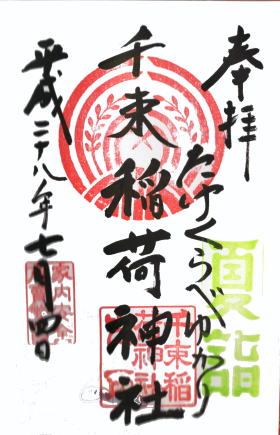 奉拝
たけくらべゆかり
夏詣
千束稲荷神社
千束稲荷神社
平成二十八年七月四日
家内安全